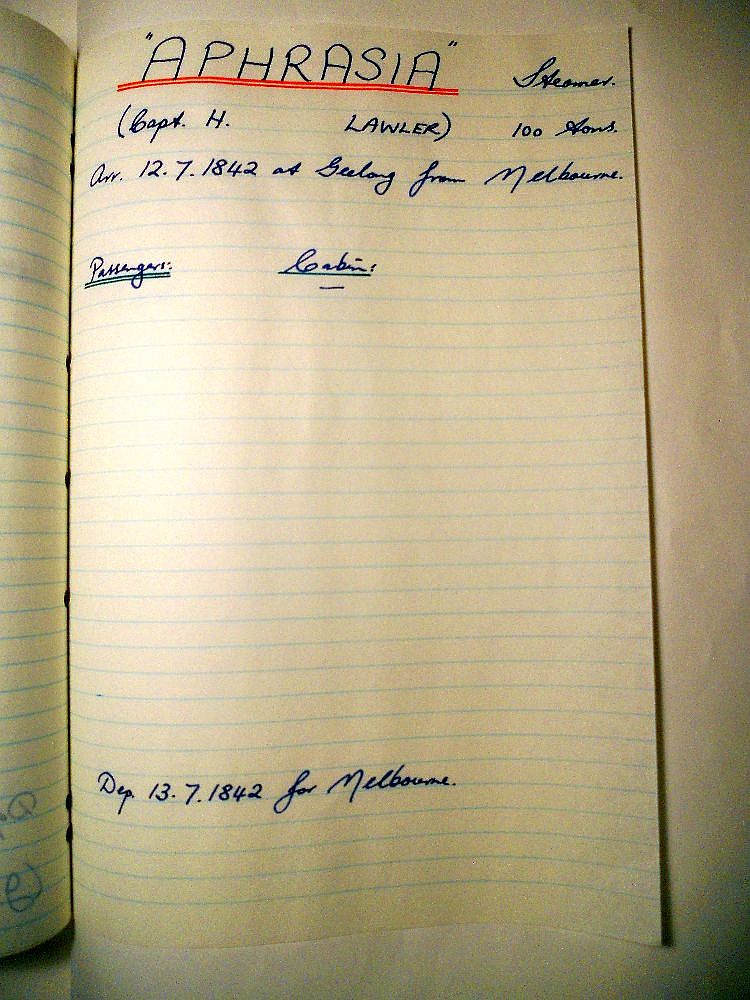 "APHRASIA" Steamer.
(Capt. H. LAWLER) 100 tons.
Arr. 12.7.1842 at Geelong from Melbourne.
Passengers: Cabin:
—
Dep. 13.7.1842 for Melbourne.